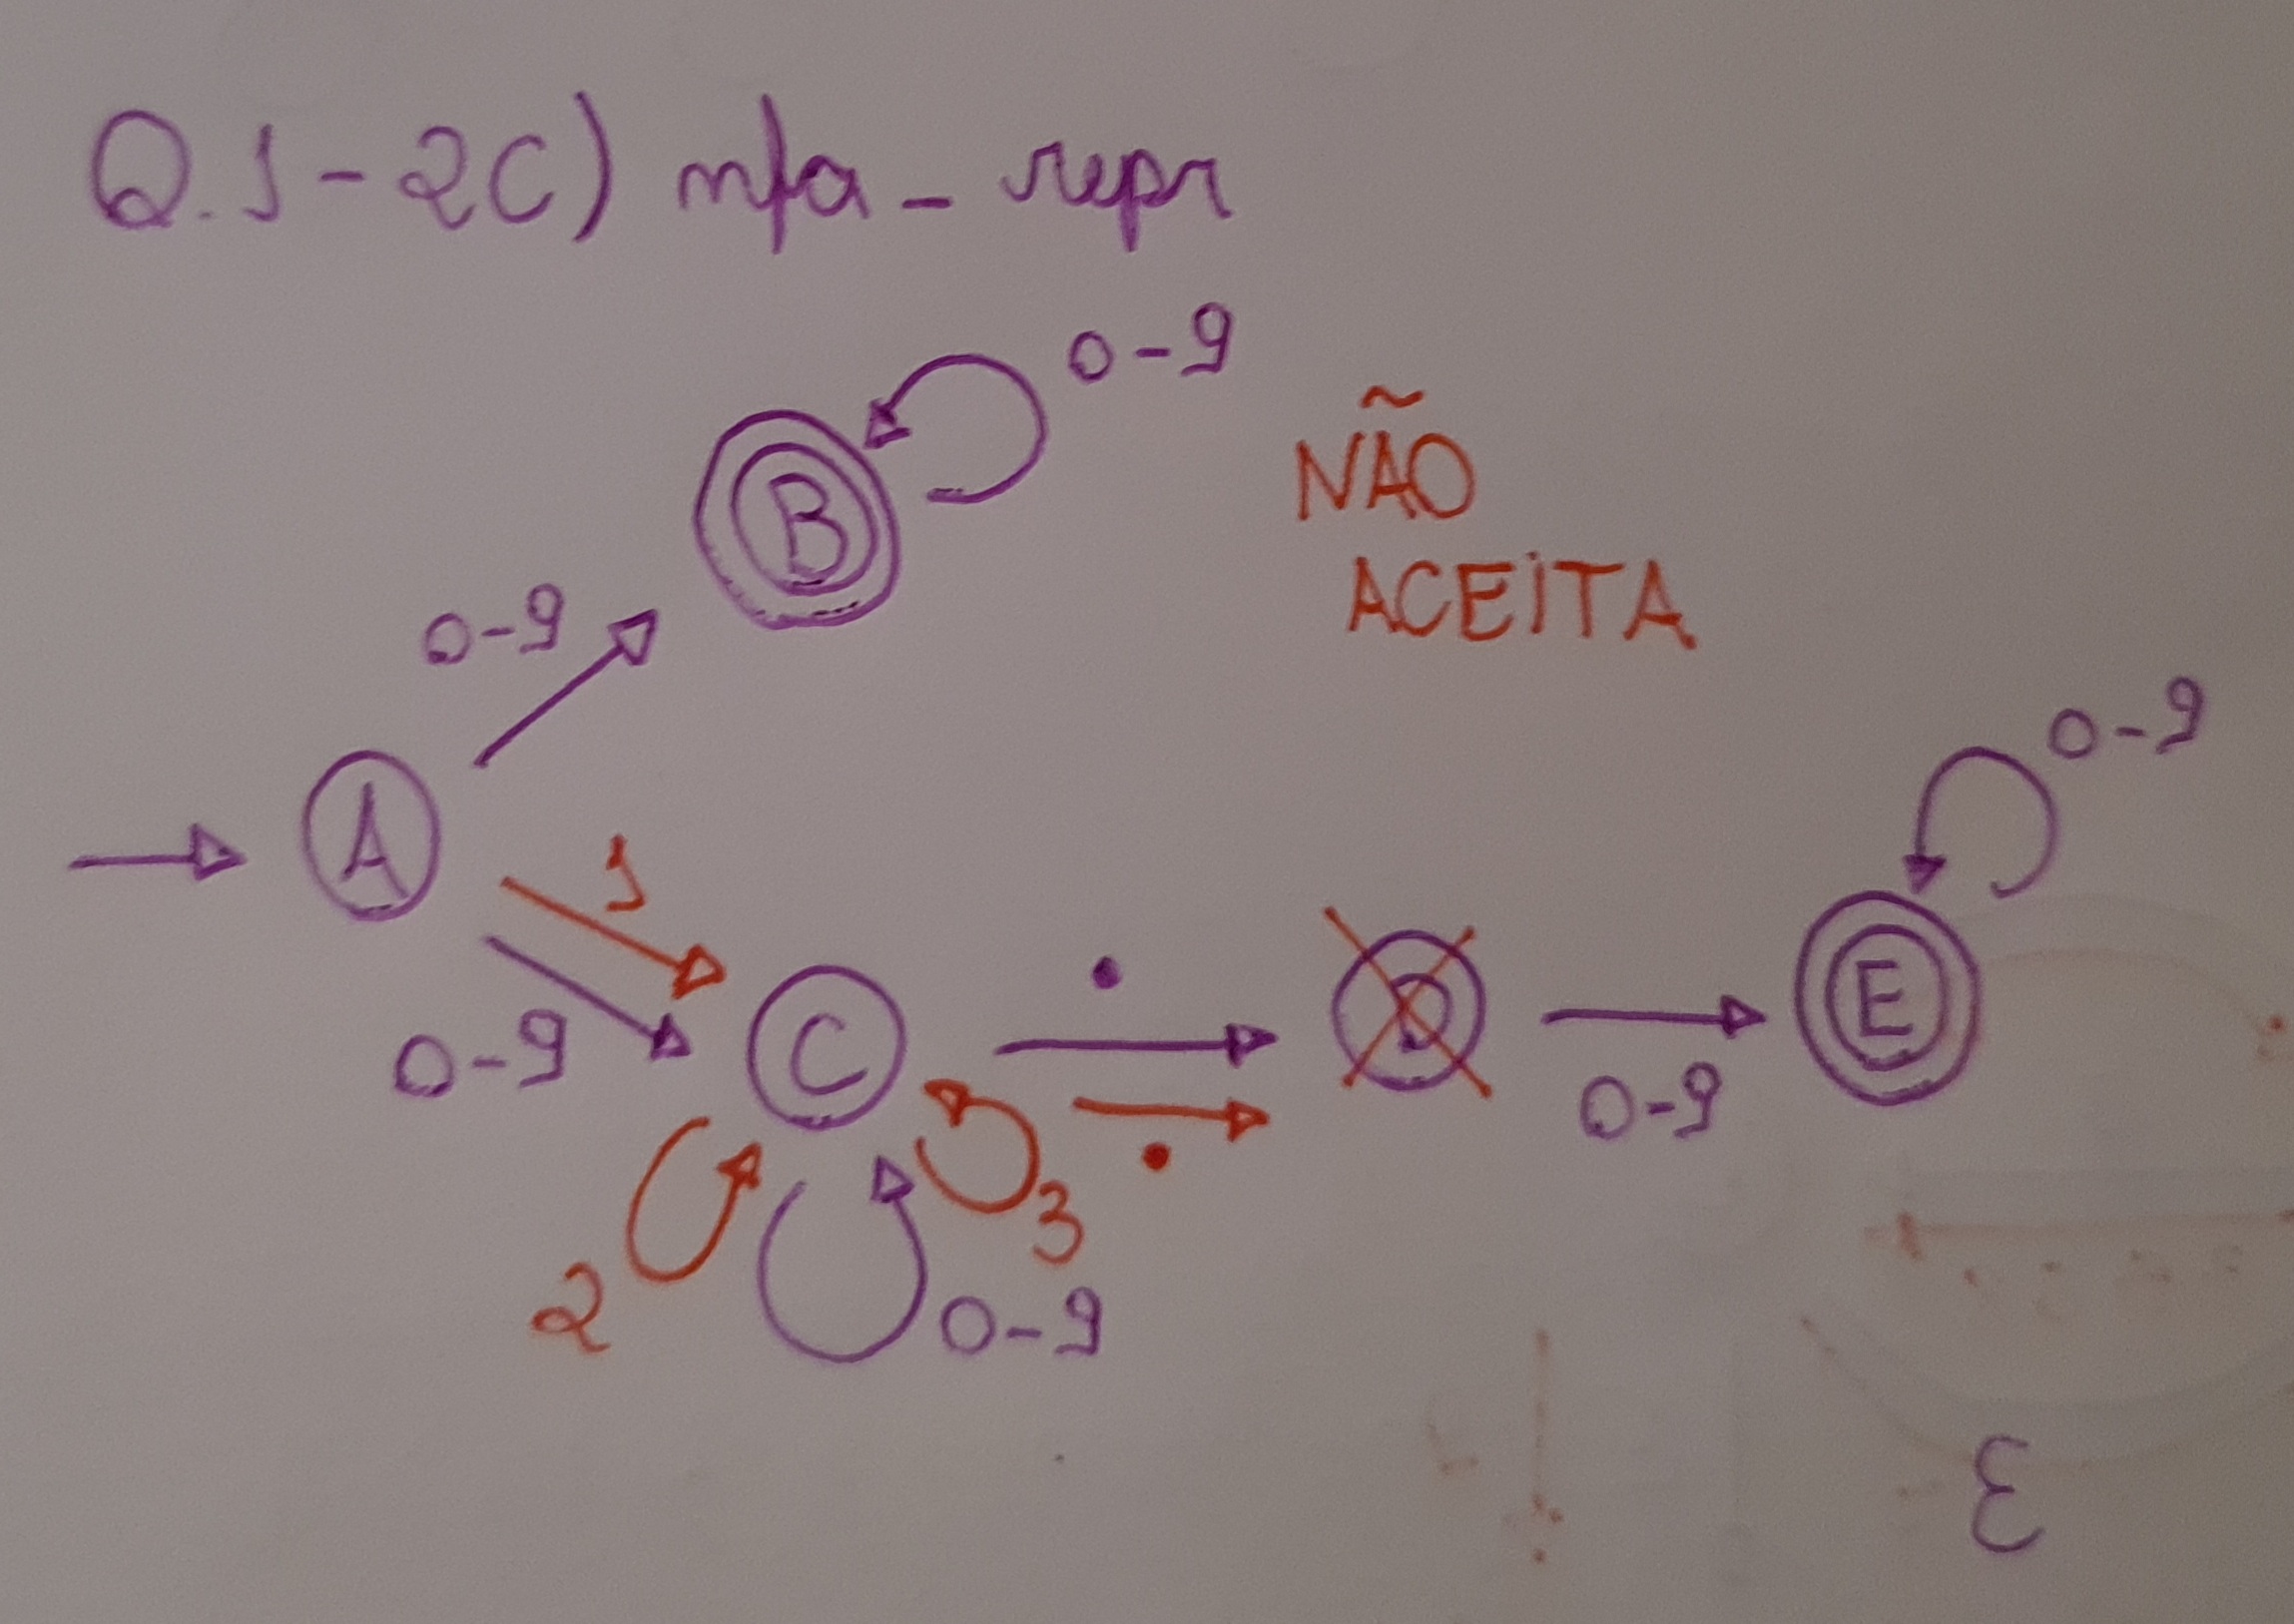 Q.1-2C) nfa_repr
0-9
NÃO
B
ACEITA
0-9
0-9
A
1
0-9
C
.
D
E
0-9
.
0-9
3
2
0-9
ε